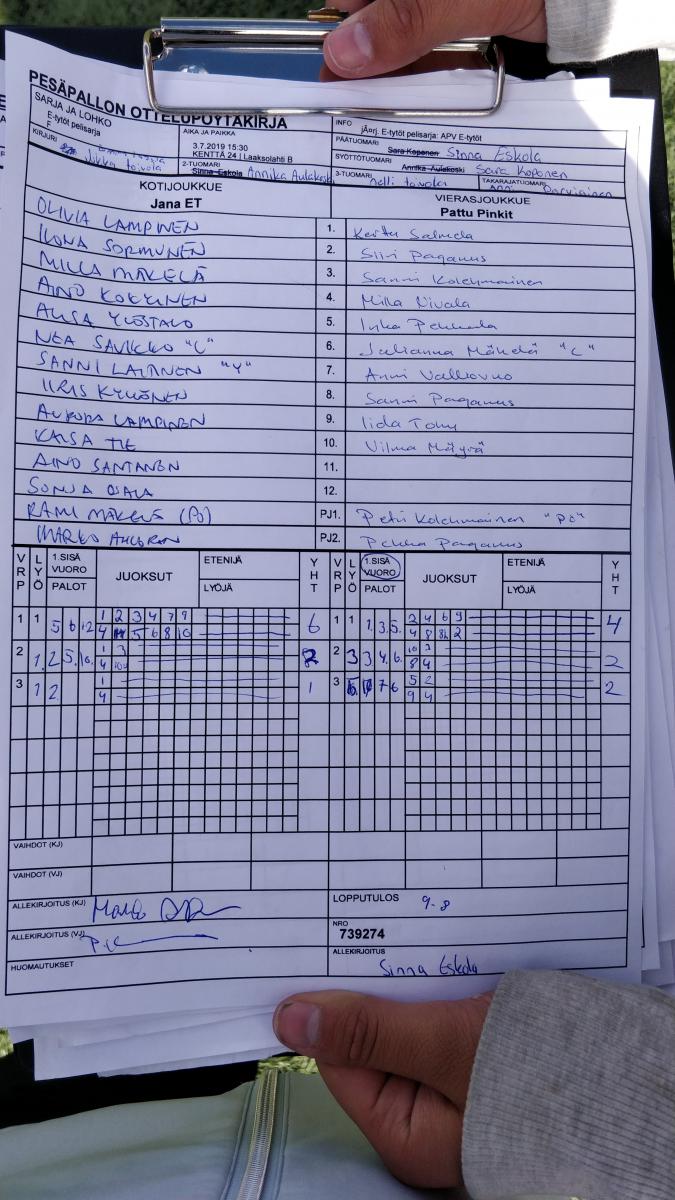 PESÄPALLON OTTELUPÖYTÄKIRJA
SARJA JA LOHKO
E-tytöt pelisarja
F
AIKA JA PAIKKA
3.7.2019 15:30
KENTTÄ 24 | Laaksolahti B
INFO
jÄerj. E-tytöt pelisarja: APV E-tytöt
KIRJURI Jukka Toivola
2-TUOMARI
Sinna Eskola Annika Aulakoski
PÄÄTUOMARI Sara Koponen Sinna Eskola
SYÖTTÖTUOMARI Annika Aulakoski Sara Koponen
3-TUOMARI Nelli Toivola
TAKARAJATUOMARI Anni
KOTIJOUKKUE
Jana ET
VIERASJOUKKUE
Pattu Pinkit
OLIVIA LAMPINEN 1. Kerttu
ILONA SORMUNEN 2. Siiri Paganus
MILLA MÄKELÄ 3. Sanni Kolehmainen
AINO KOKKINEN 4. Milla Nivala
AIISA YLÖSTALO 5. Inka Pekkala
NEA SAVIKKO "C" 6. Julianna Mäkelä "C"
SANNI LAITINEN "V" 7. Anni
IIRIS KYLLÖNEN 8. Sanni Paganus
AURORA LAMPINEN 9. Iida
KAISA TIE 10. Vilma Mäyrä
AINO SANTANEN 11.
SONJA OJALA 12.
RAMI MÄKELÄ (PJ) PJ1. Petri Kolehmainen "PJ"
MARKO AHLGREN PJ2. Pekka Paganus
VRP LYÖ 1.SISÄ VUORO PALOT JUOKSUT ETENIJÄ LYÖJÄ YHT VRP LYÖ 1.SISÄ VUORO PALOT JUOKSUT ETENIJÄ LYÖJÄ YHT
1 1 5 6 12 1 2 3 4 7 9 6 1 1 1. 3. 5. 2 4 6 9 4
4 5 6 8 10 4 8 2
2 1. 2. 5. 10. 1 3 2 2 3 3 4. 6. 10 3 2
4 8 4
3 1 2 1 1 3 7 6 5 2 2
4 9 4
VAIHDOT (KJ)
VAIHDOT (VJ)
ALLEKIRJOITUS (KJ)
LOPPUTULOS 9-8
ALLEKIRJOITUS (VJ)
NRO
739274
HUOMAUTUKSET
ALLEKIRJOITUS
Sinna Eskola